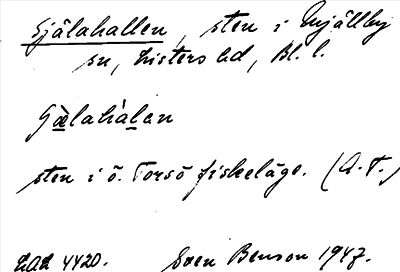 Själahallen, sten i Mjällby
sn, Listers hd, Bl. l.
Gälahàlan
sten i ö. Torsö fiskeläge. (A.T.)
LAA 4420. Sven Benson 1947.